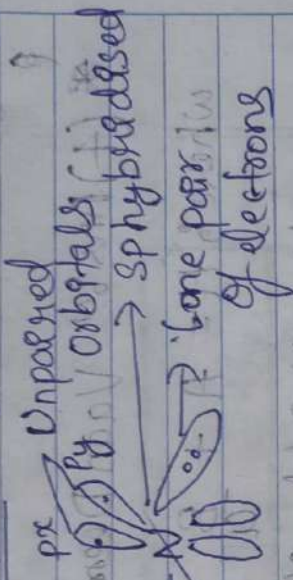 px Unpaired
py orbitals
→ sp hybridised
N → Lone pair
of electrons